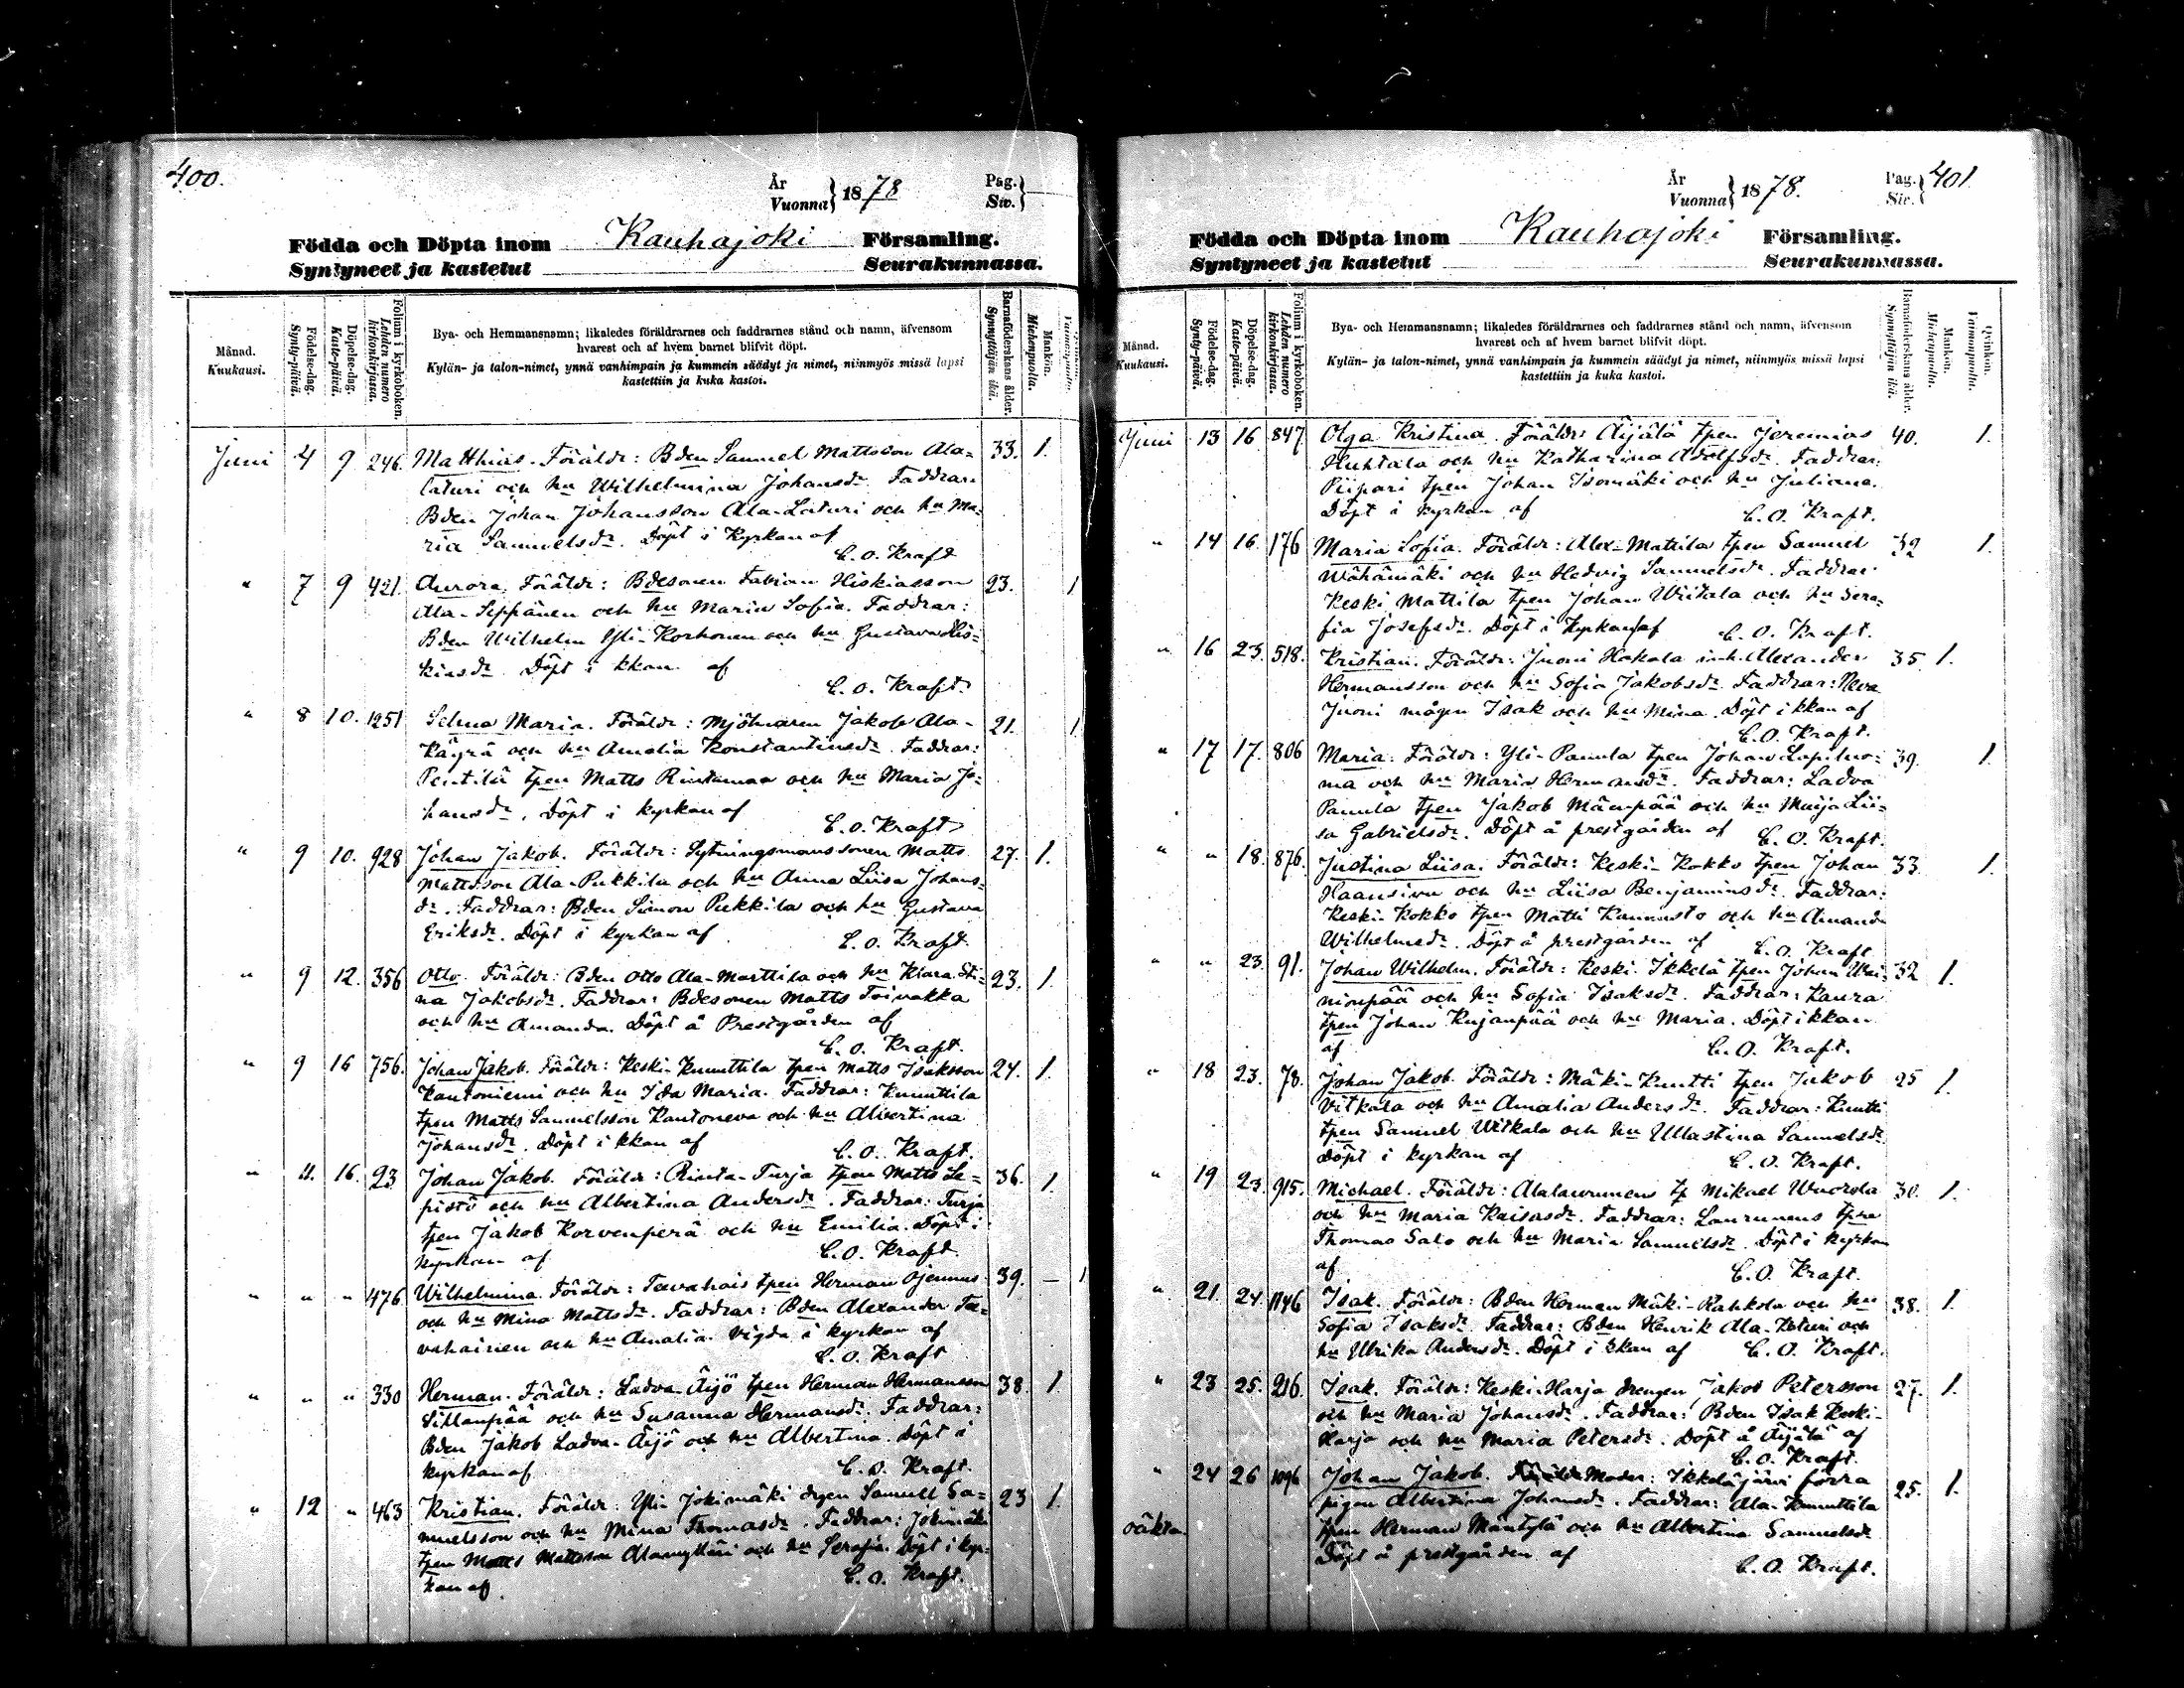 400.
År
Vuonna
1878
Pag.
Siv.
Födda och Döpta inom Kauhajoki Församling.
Syntyneet ja kastetut Seurakunnassa.
Månad.
Kuukausi.
Födelse-dag.
Synty-päivä.
Döpelse-dag.
Kaste-päivä.
Folium i kyrkoboken.
Lehden numero kirkonkirjassa.
Bya- och Hemmansnamn; likaledes föräldrarnes och faddrarnes stånd och namn, äfvensom
hvarest och af hvem barnet blifvit döpt.
Kylän- ja talon-nimet, ynnä vanhimpain ja kummein säädyt ja nimet, niinmyös missä lapsi
kastettiin ja kuka kastoi.
Barnaföderskans ålder.
Synnyttäjän ikä.
Mankön.
Miehenpuolta.
Juni 4 9 246. Matthias. Föräldr: Bden Samuel Mattsson Ala- 33. 1.
laturi och hu Wilhelmina Johansdr. Faddrar:
Bden Johan Johansson Ala-Laturi och hu Ma-
ria Samuelsdr. Döpt i Kyrkan af
C. O. Kraft
" 7 9 421. Aurora. Föräldr: Bdesonen Fabian Hiskiasson 23. 1
Ala-Seppänen och hu Maria Sofia. Faddrar:
Bden Wilhelm Yli-Korhonen och hu Gustava His-
kiasdr. Döpt i kkan af
C. O. Kraft.
" 8 10. 1251 Selma Maria. Föräldr: Mjölnaren Jakob Ala- 21. 1
Käyrä och hu Amalia Konstantinsdr. Faddrar:
Pentilä tpen Matts Rintamaa och hu Maria Jo-
hansdr. Döpt i kyrkan af
C. O. Kraft
" 9 10. 928 Johan Jakob. Föräldr: Sytningsmanssonen Matts 27. 1.
Mattsson Ala-Pukkila och hu Anna Liisa Johans-
dr. Faddrar: Bden Simon Pukkila och hu Gustava
Eriksdr. Döpt i kyrkan af
C. O. Kraft.
" 9 12. 356 Otto. Föräldr: Bden Otto Ala-Marttila och hu Klara Sti- 23. 1.
na Jakobsdr. Faddrar: Bdesonen Matts Toivakka
och hu Amanda. Döpt å Prestgården af
C. O. Kraft.
" 9 16 756. Johan Jakob. Föräldr: Keski-Knuuttila tpen Matts Isaksson 24. 1.
Kantoniemi och hu Ida Maria. Faddrar: Knuuttila
tpen Matts Samuelsson Kantoneva och hu Albertina
Johansdr. Döpt i kkan af
C. O. Kraft.
" 11. 16. 23 Johan Jakob. Föräldr: Rinta-Turja tpen Matts Le- 36. 1.
pistö och hu Albertina Andersdr. Faddrar: Turja
tpen Jakob Korvenperä och hu Emilia. Döpt i
kyrkan af
C. O. Kraft
" " " 476 Wilhelmina. Föräldr: Tavahais tpen Herman Ojennus 39. — 1
och hu Mina Mattsdr. Faddrar: Bden Alexander Ta-
vahainen och hu Amalia. Vigda i kyrkan af
C. O. Kraft
" " " 330 Herman. Föräldr: Ladva-Äijö tpen Herman Hermansson 38. 1.
Sillanpää och hu Susanna Hermansdr. Faddrar:
Bden Jakob Ladva-Äijö och hu Albertina. Döpt i
kyrkan af
C. O. Kraft.
" 12 " 463 Kristian. Föräldr: Yli-Jokimäki drgen Samuel Sa- 23 1.
muelsson och hu Mina Thomasdr. Faddrar: Jokimäki
tpen Matts Mattsson Alamylläri och hu Serafia. Döpt i kyr-
kan af
C. O. Kraft.
År
Vuonna
1878.
Pag.
Siv.
401
Födda och Döpta inom Kauhajoki Församling.
Syntyneet ja kastetut Seurakunnassa.
Månad.
Kuukausi.
Födelse-dag.
Synty-päivä.
Döpelse-dag.
Kaste-päivä.
Folium i kyrkoboken.
Lehden numero kirkonkirjassa.
Bya- och Hemmansnamn; likaledes föräldrarnes och faddrarnes stånd och namn, äfvensom
hvarest och af hvem barnet blifvit döpt.
Kylän- ja talon-nimet, ynnä vanhimpain ja kummein säädyt ja nimet, niinmyös missä lapsi
kastettiin ja kuka kastoi.
Barnaföderskans ålder.
Synnyttäjän ikä.
Mankön.
Miehenpuolta.
Qvinkön.
Vaimonpuolta.
Juni 13 16 847 Olga Kristina. Föräldr: Äijälä tpen Jeremias 40. 1.
Huhtala och hu Katharina Adolfsdr. Faddrar:
Piipari tpen Johan Isomäki och hu Juliana.
Döpt i kyrkan af
C. O. Kraft.
" 14 16. 176 Maria Sofia. Föräldr: Alex-Mattila tpen Samuel 32 1.
Wähämäki och hu Hedvig Samuelsdr. Faddrar
Keski Mattila tpen Johan Wiitala och hu Sera-
fia Josefsdr. Döpt i kyrkan af
C. O. Kraft.
" 16 23. 518. Kristian. Föräldr: Juoni Hakala inh. Alexander 35 1.
Hermansson och hu Sofia Jakobsdr. Faddrar: Neva
Juoni mågen Isak och hu Mina. Döpt i kkan af
C. O. Kraft.
" 17 17. 806 Maria. Föräldr: Yli-Panula tpen Johan Lapiluo- 39. 1.
ma och hu Maria Hermansdr. Faddrar: Ladva
Panula tpen Jakob Mänpää och hu Maija Lii-
sa Gabrielsdr. Döpt å prestgården af
C. O. Kraft.
" " 18. 876. Justina Liisa. Föräldr: Keski-Kokko tpen Johan 33 1.
Haansivu och hu Liisa Benjaminsdr. Faddrar:
Keski-Kokko tpen Matti Kannusto och hu Amanda
Wilhelmsdr. Döpt å prestgården af
C. O. Kraft
" " 23. 91. Johan Wilhelm. Föräldr: Keski-Ikkelä tpen Johan Wai- 32 1.
nionpää och hu Sofia Isaksdr. Faddrar: Kaura
tpen Johan Kujanpää och hu Maria. Döpt i kkan
af
C. O. Kraft.
" 18 23. 78. Johan Jakob. Föräldr: Mäki-Knutti tpen Jakob 25 1.
Vitkala och hu Amalia Andersdr. Faddrar: Knutti
tpen Samuel Witkala och hu Ullastina Samuelsdr.
Döpt i kyrkan af
C. O. Kraft.
" 19 23. 915. Michael. Föräldr: Alalaurunens tp Mikael Wuorela 30. 1.
och hu Maria Kaisasdr. Faddrar: Laurunens tpen
Thomas Salo och hu Maria Samuelsdr. Döpt i kyrkan
af
C. O. Kraft.
" 21. 24. 1146 Isak. Föräldr: Bden Herman Mäki-Rahkola och hu 38. 1.
Sofia Isaksdr. Faddrar: Bden Henrik Ala-Keturi och
hu Ulrika Andersdr. Döpt i kkan af C. O. Kraft.
" 23 25. 216. Isak. Föräldr: Keski-Harja drengen Jakob Petersson 27. 1.
och hu Maria Johansdr. Faddrar: Bden Isak Keski-
Harja och hu Maria Petersdr. Döpt å Äijälä af
C. O. Kraft.
" 24 26 1096 Johan Jakob. Moder: Ikkeläjärvi förra 25. 1.
pigan Albertina Johansdr. Faddrar: Ala-Knuuttila
oäkta tpen Herman Mäntylä och hu Albertina Samuelsdr.
Döpt å prestgården af
C. O. Kraft.